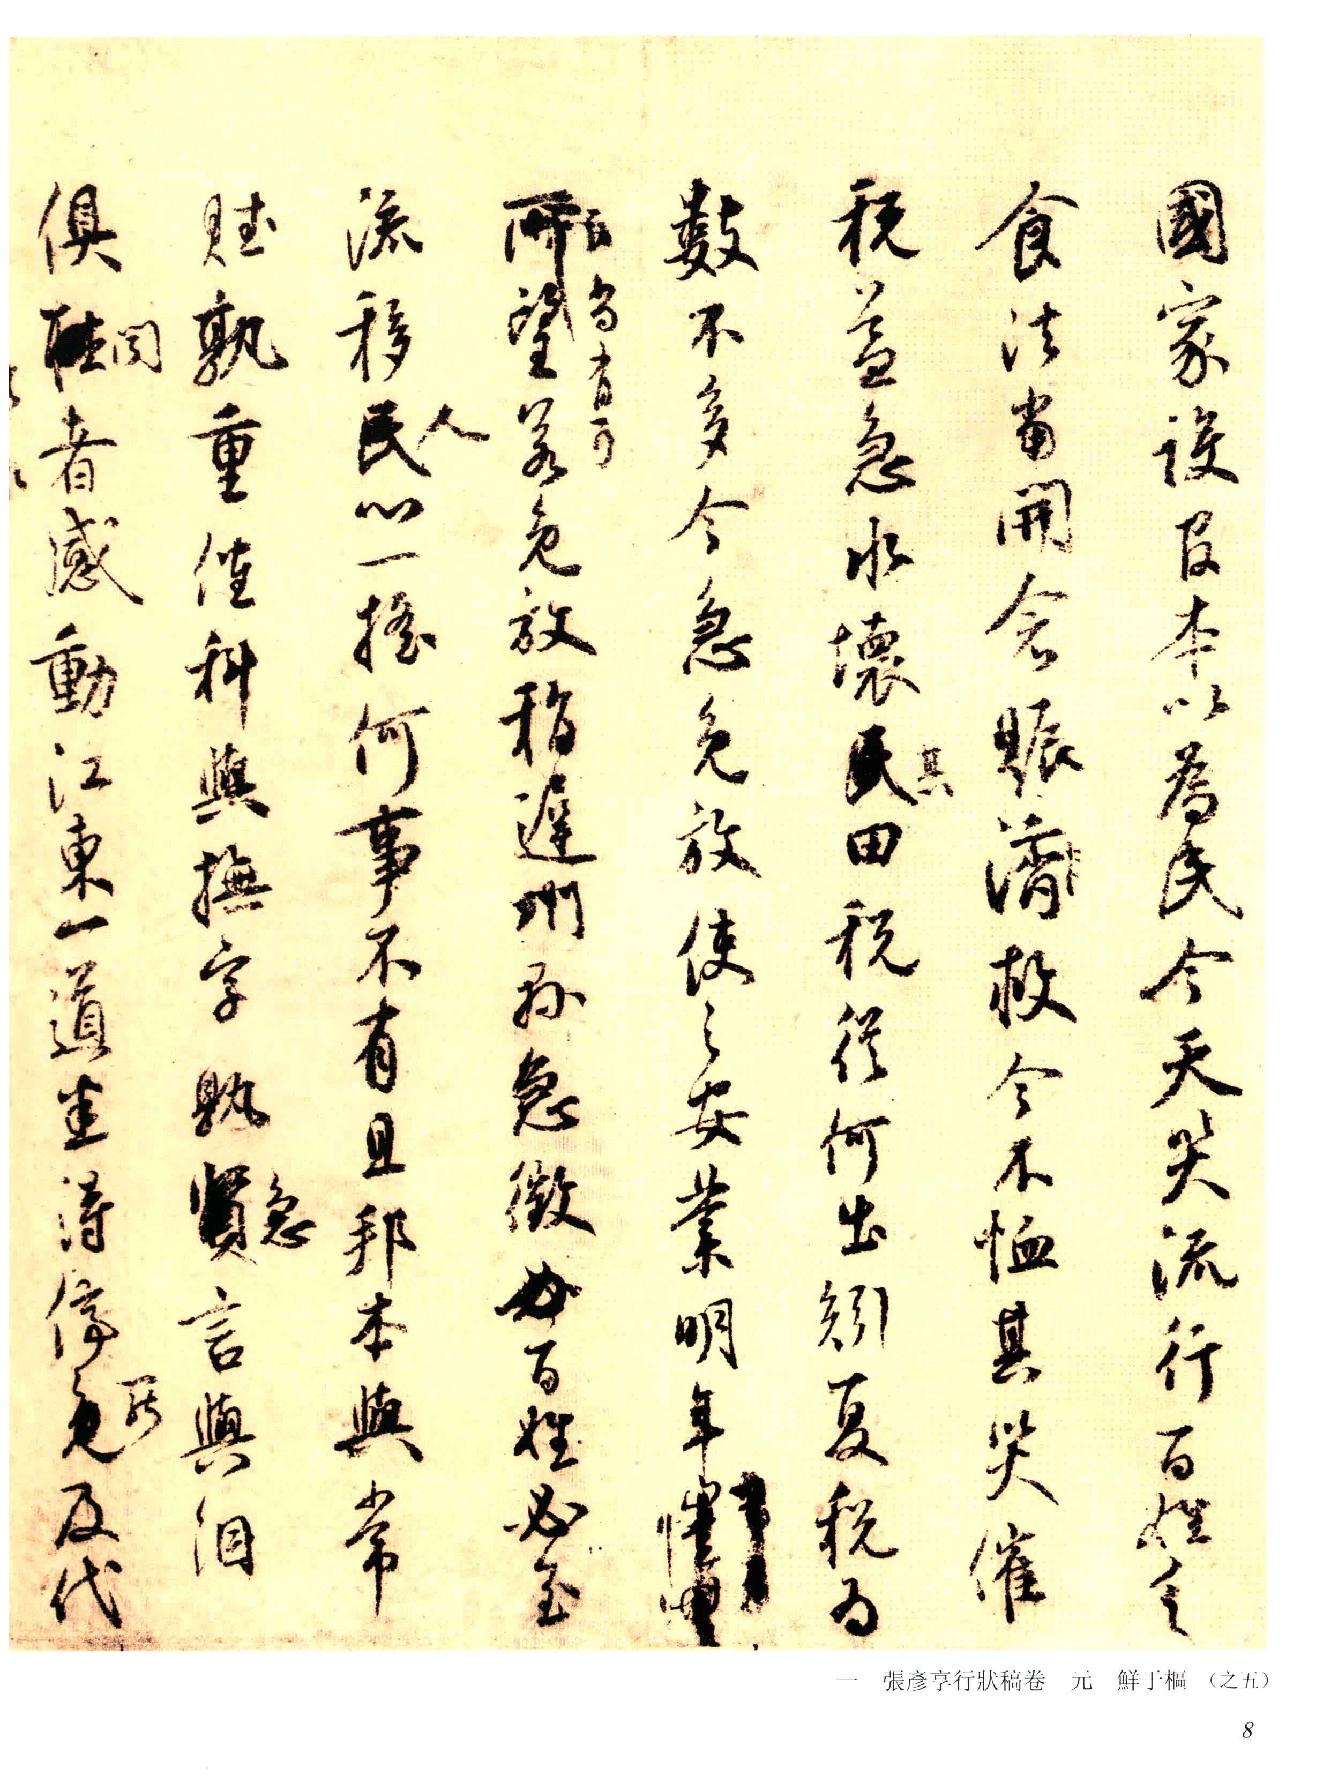 國家設官本以為民今天災流行百姓乏
食法當開倉賑濟救今不恤其災催
稅益急水壞其田稅從何出矧夏稅為
數不多今急免放使之安業明年
尚有可
所望若免放稍遲州縣急徵百姓必至
流移人心一搖何事不有且邦本與常
賦孰重催科與撫字孰急言與泪
俱聞者感動江東一道盡得停罷及代
一 張彥享行狀稿卷 元 鮮于樞 (之五)
8